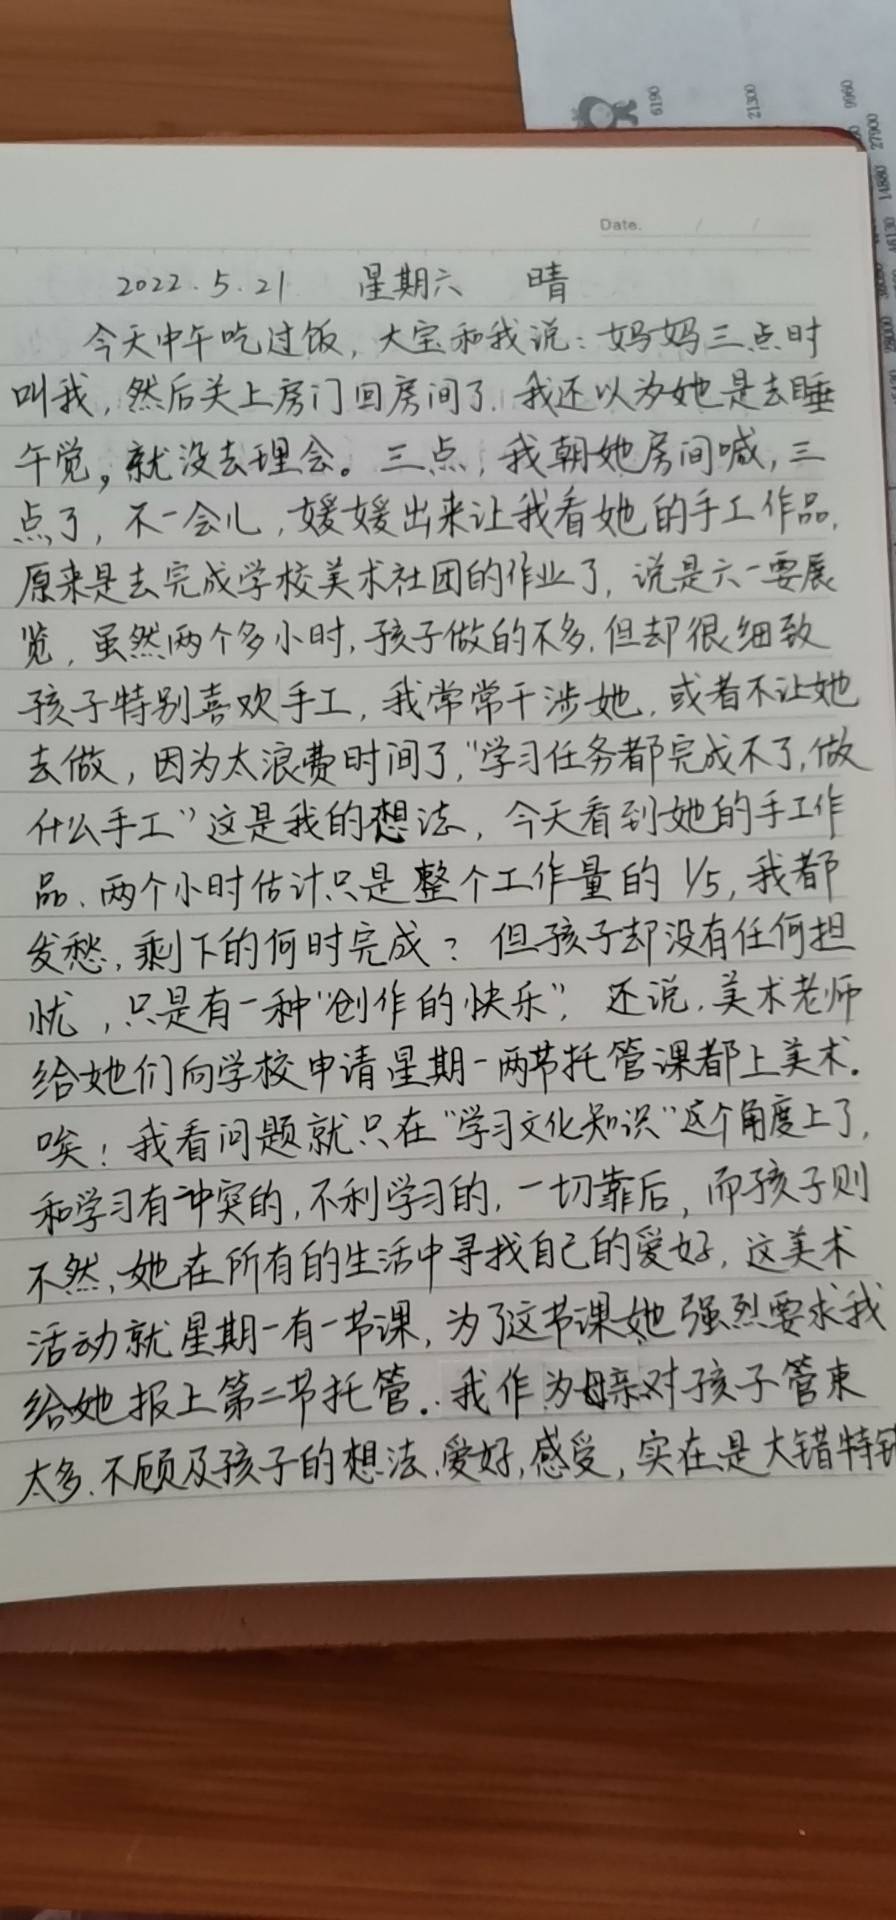 0619
21300
0990
27900
14880
Date. / /
2022.5.21 星期六 晴
今天中午吃过饭，大宝和我说：妈妈三点时
叫我，然后关上房门回房间了.我还以为她是去睡
午觉，就没去理会。三点，我朝她房间喊，三
点了，不一会儿，媛媛出来让我看她的手工作品，
原来是去完成学校美术社团的作业了，说是六一要展
览，虽然两个多小时，孩子做的不多，但却很细致
孩子特别喜欢手工，我常常干涉她，或者不让她
去做，因为太浪费时间了，“学习任务都完成不了，做
什么手工”这是我的想法，今天看到她的手工作
品、两个小时估计只是整个工作量的1/5，我都
发愁，剩下的何时完成？但孩子却没有任何担
忧，只是有一种“创作的快乐”，还说，美术老师
给她们向学校申请星期一两节托管课都上美术.
唉！我看问题就只在“学习文化知识”这个角度上了，
和学习有冲突的，不利学习的，一切靠后，而孩子则
不然，她在所有的生活中寻找自己的爱好，这美术
活动就星期一有一节课，为了这节课她强烈要求我
给她报上第二节托管..我作为母亲对孩子管束
太多、不顾及孩子的想法、爱好，感受，实在是大错特错